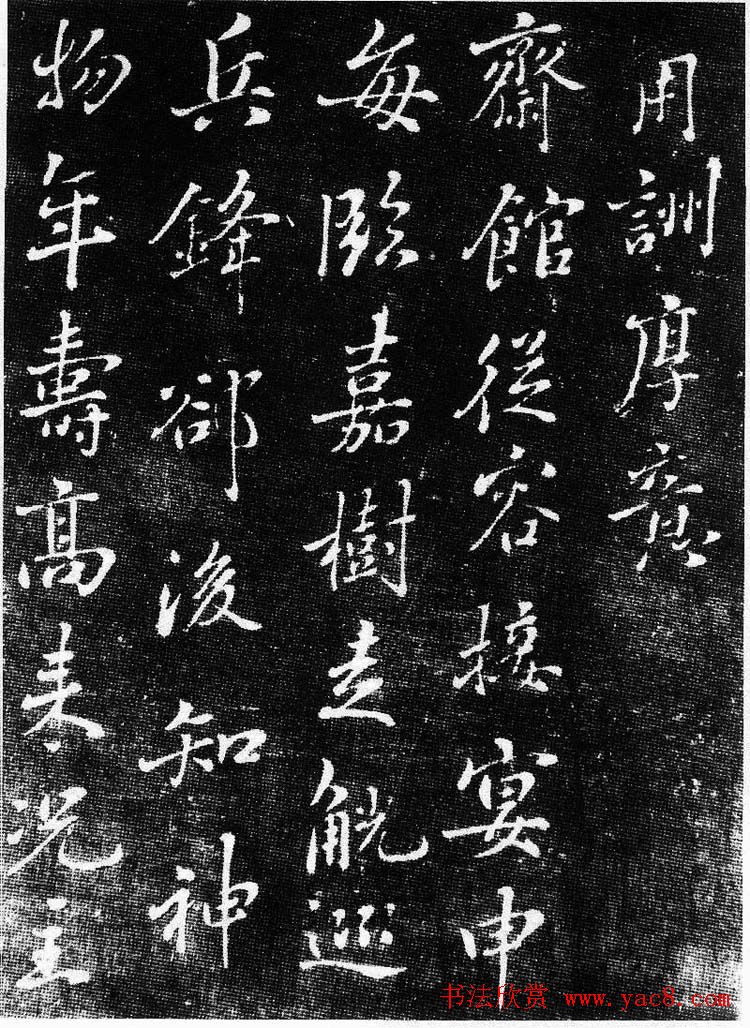 用詶厚意
齋館從容接宴申
每臨嘉樹走觥巡
兵鋒郤後知神
物年壽高来況主
书法欣赏 www.yac8.com